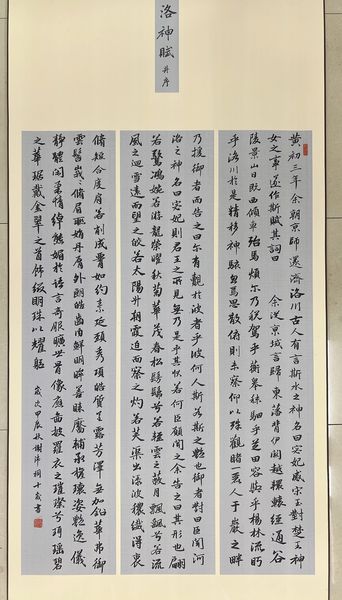 洛神賦 并序
黃初三年余朝京師還濟洛川古人有言斯水之神名曰宓妃感宋玉對楚王神
女之事遂作斯賦其詞曰 余從京域言歸東藩背伊闕越轘轅經通谷
陵景山日既西傾車殆馬煩尔乃稅駕乎蘅皋秣駟乎芝田容與乎楊林流眄
乎洛川於是精移神駭忽焉思散俯則未察仰以殊觀睹一麗人于巖之畔
乃援御者而告之曰尓有覿於彼者乎彼何人斯若斯之艷也御者對曰臣聞河
洛之神名曰宓妃則君王之所見無乃是乎其狀若何臣願聞之余告之曰其形也翩
若驚鴻婉若游龍榮曜秋菊華茂春松髣髴兮若輕雲之蔽月飄颻兮若流
風之迴雪遠而望之皎若太陽升朝霞迫而察之灼若芙蕖出淥波穠纖得衷
脩短合度肩若削成腰如約素延頸秀項皓質呈露芳澤無加鉛華弗御
雲髻峩峩脩眉聯娟丹脣外朗皓齒內鮮明眸善睞靨輔承權瓌姿艷逸儀
靜體閑柔情綽態媚於語言奇服曠世骨像應畫披羅衣之璀璨兮珥瑤碧
之華琚戴金翠之首飾綴明珠以耀軀 歲次甲辰秋謝沛桐十歲書